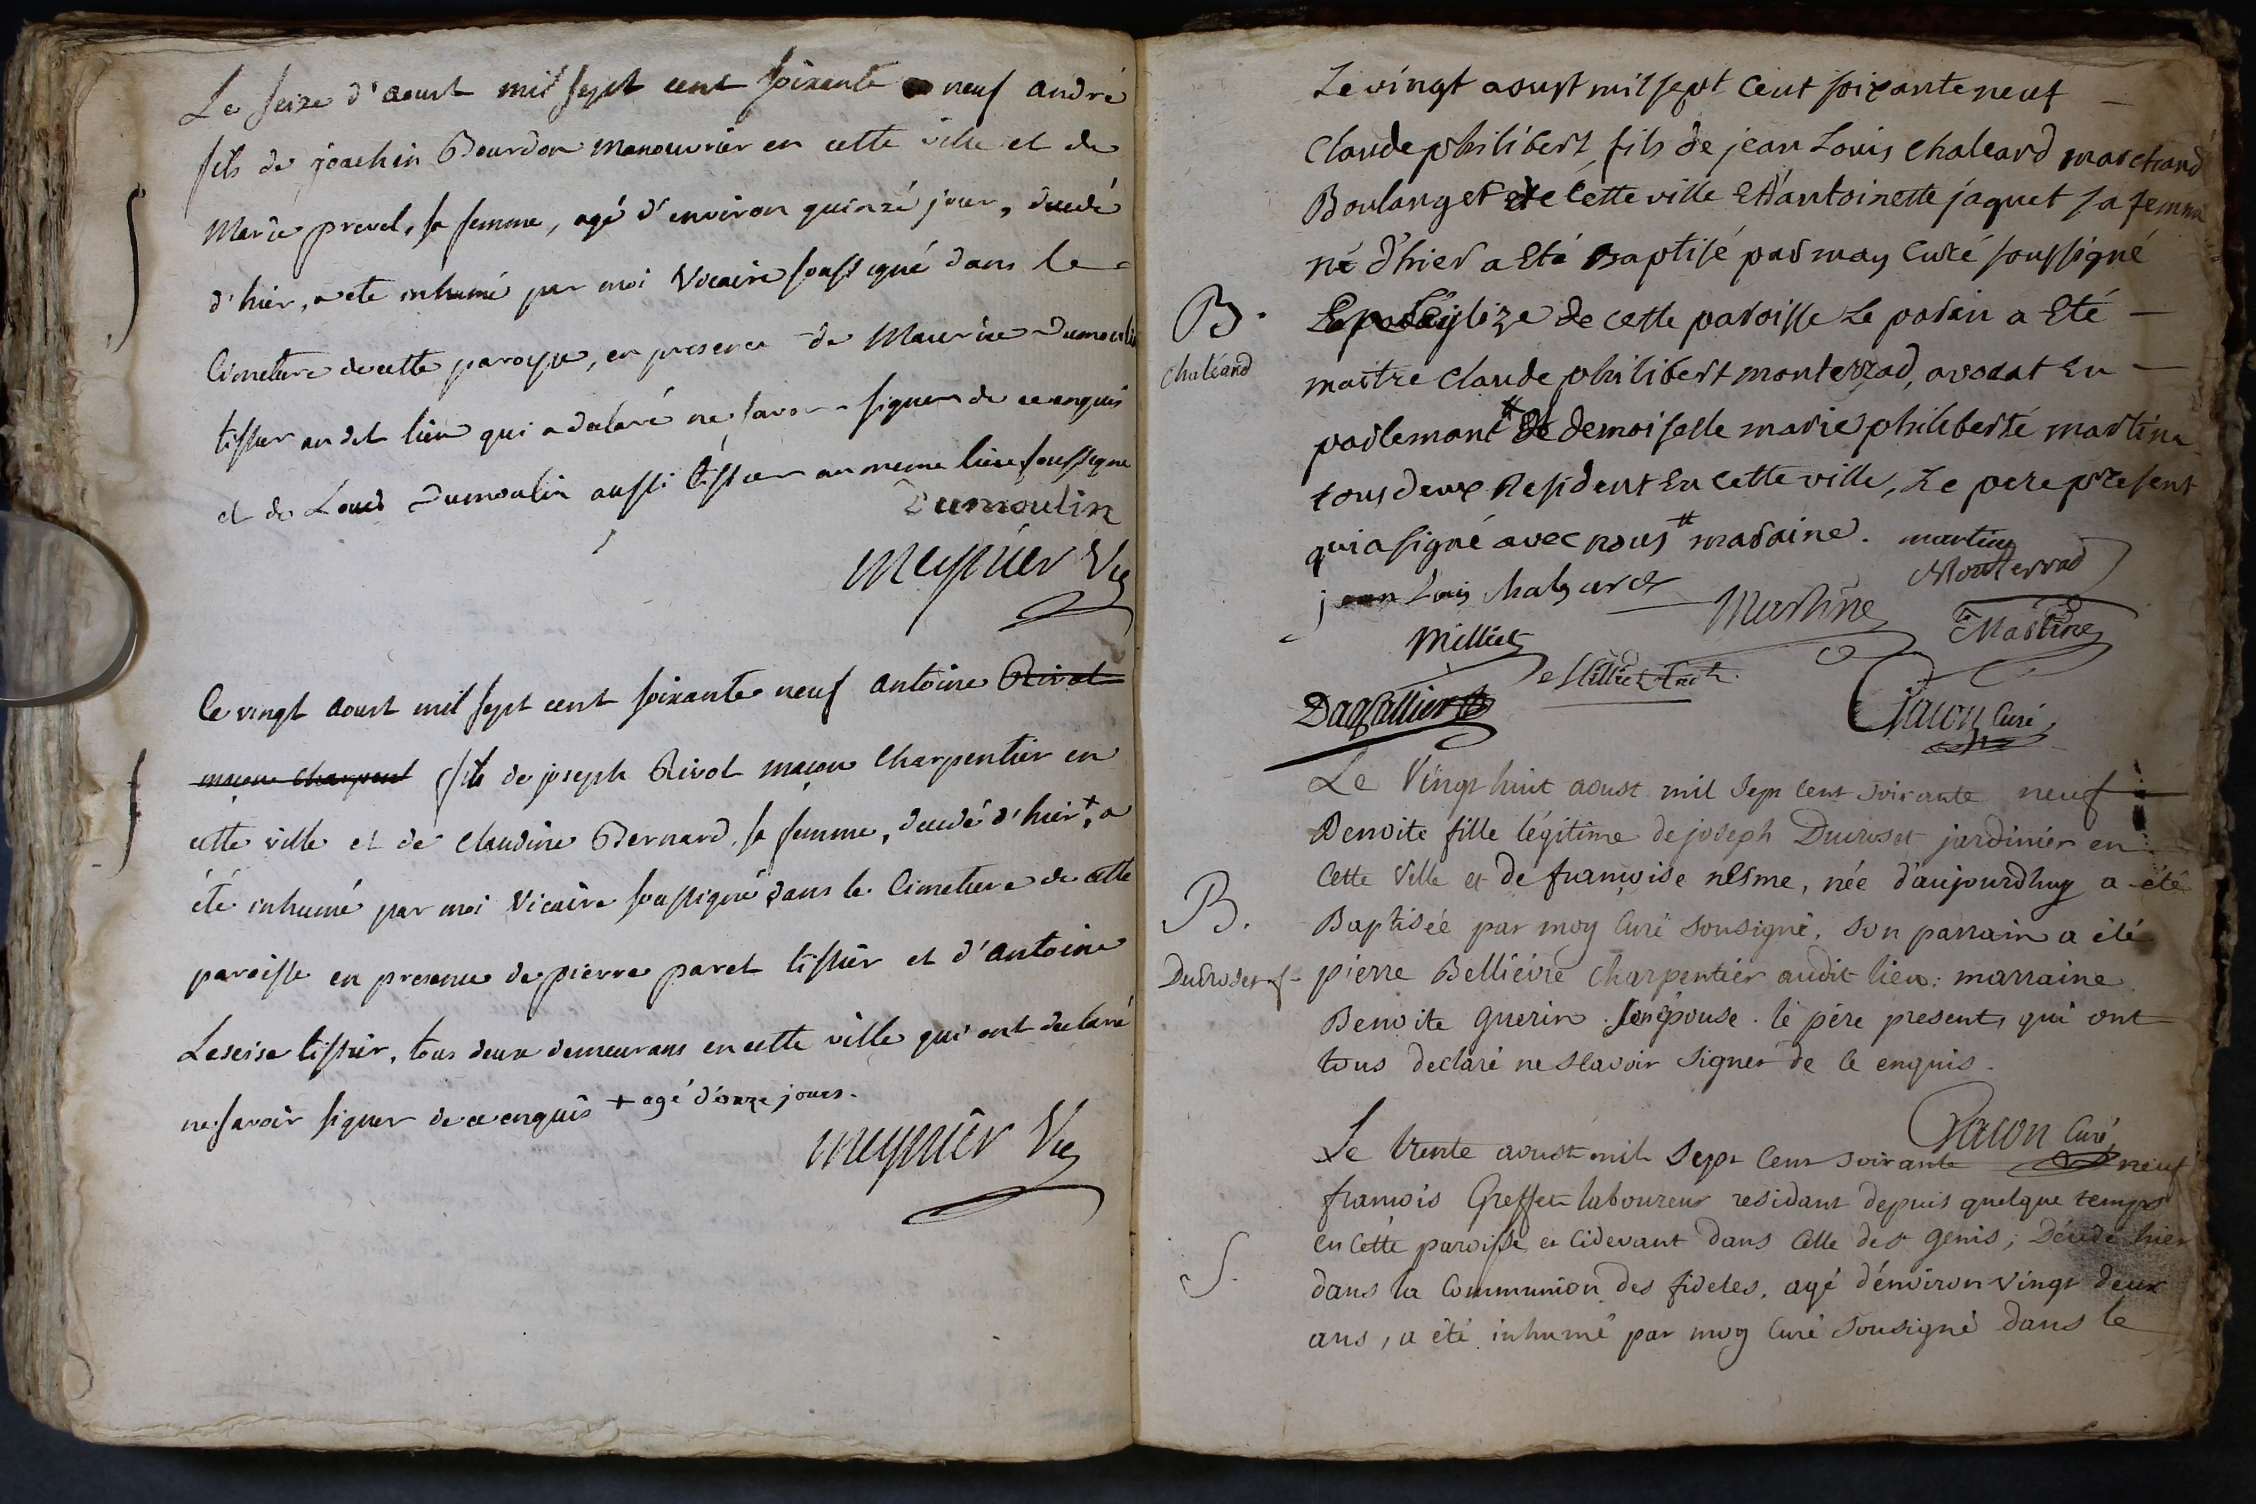 Le seize d'aoust mil sept cent soixante neuf andré
fils de joachin Bourdon manouvrier en cette ville et de
Marie prevel, sa femme, agé d'environ quinzé jour, decedé
d'hier, a eté inhumé par moi Vicaire soussigné dans le
Cimetiere de cette paroisse, en presence de Maurice Dumoulin
tissier au dit lieu qui a declaré ne savoir signer de ce enquis
et de Louis Dumoulin aussi tissier au meme lieu soussigne
Dumoulin
meynier Vic
Le vingt aoust mil sept cent soixante neuf antoine Rivol
maçon charpent fils de joseph Rivol maçon charpentier en
cette ville et de claudine Bernard, sa femme, decedé d'hier, + a
été inhumé par moi Vicaire soussigné dans le Cimetiere de cette
paroisse en presence de pierre paret tissier et d'antoine
Leseise tissier, tous deux demeurans en cette ville qui ont declaré
ne savoir signer de ce enquis + agé d'onze jours.
meynier Vic
Le vingt aoust mil sept cent soixante neuf
Claude philibert fils de jean Louis chaleard marchand
Boulanger de cette ville Et d'antoinette jaquet sa femme
né d'hier a Eté Baptisé par moy curé soussigné
B.
l'eglize de cette paroisse Le parin a Eté
chaléard
maitre claude philibert monterrad, avocat En
parlemant # demoiselle marie philiberte martine
tous deux Resident En cette ville, Le pere present
qui a signé avec nous # maraine. martine
jean Louis chaleard
Monterrad
Martine
Martine
Milliet
Dagallier
Gacon Curé
Le Vingt huit aoust mil sept cent soixante neuf
Benoite fille légitime de joseph Ducroset jardinier en
cette Ville et de françoise nesme, née d'aujourdhuy a été
B.
Baptisée par moy Curé sousigné, son parrain a été
Ducroset f.
pierre Bellièvre Charpentier audit lieu: marraine
Benoite guerin son épouse. le père present, qui ont
tous declaré ne scavoir signer de ce enquis.
Gacon Curé
Le trente aoust mil sept cent soixante neuf
francois Greffet laboureur residant depuis quelque temps
en cette paroisse et cidevant dans celle de st genis; Décédé hier
S.
dans la communion des fideles, agé d'environ vingt deux
ans, a été inhumé par moy Curé sousigné dans le